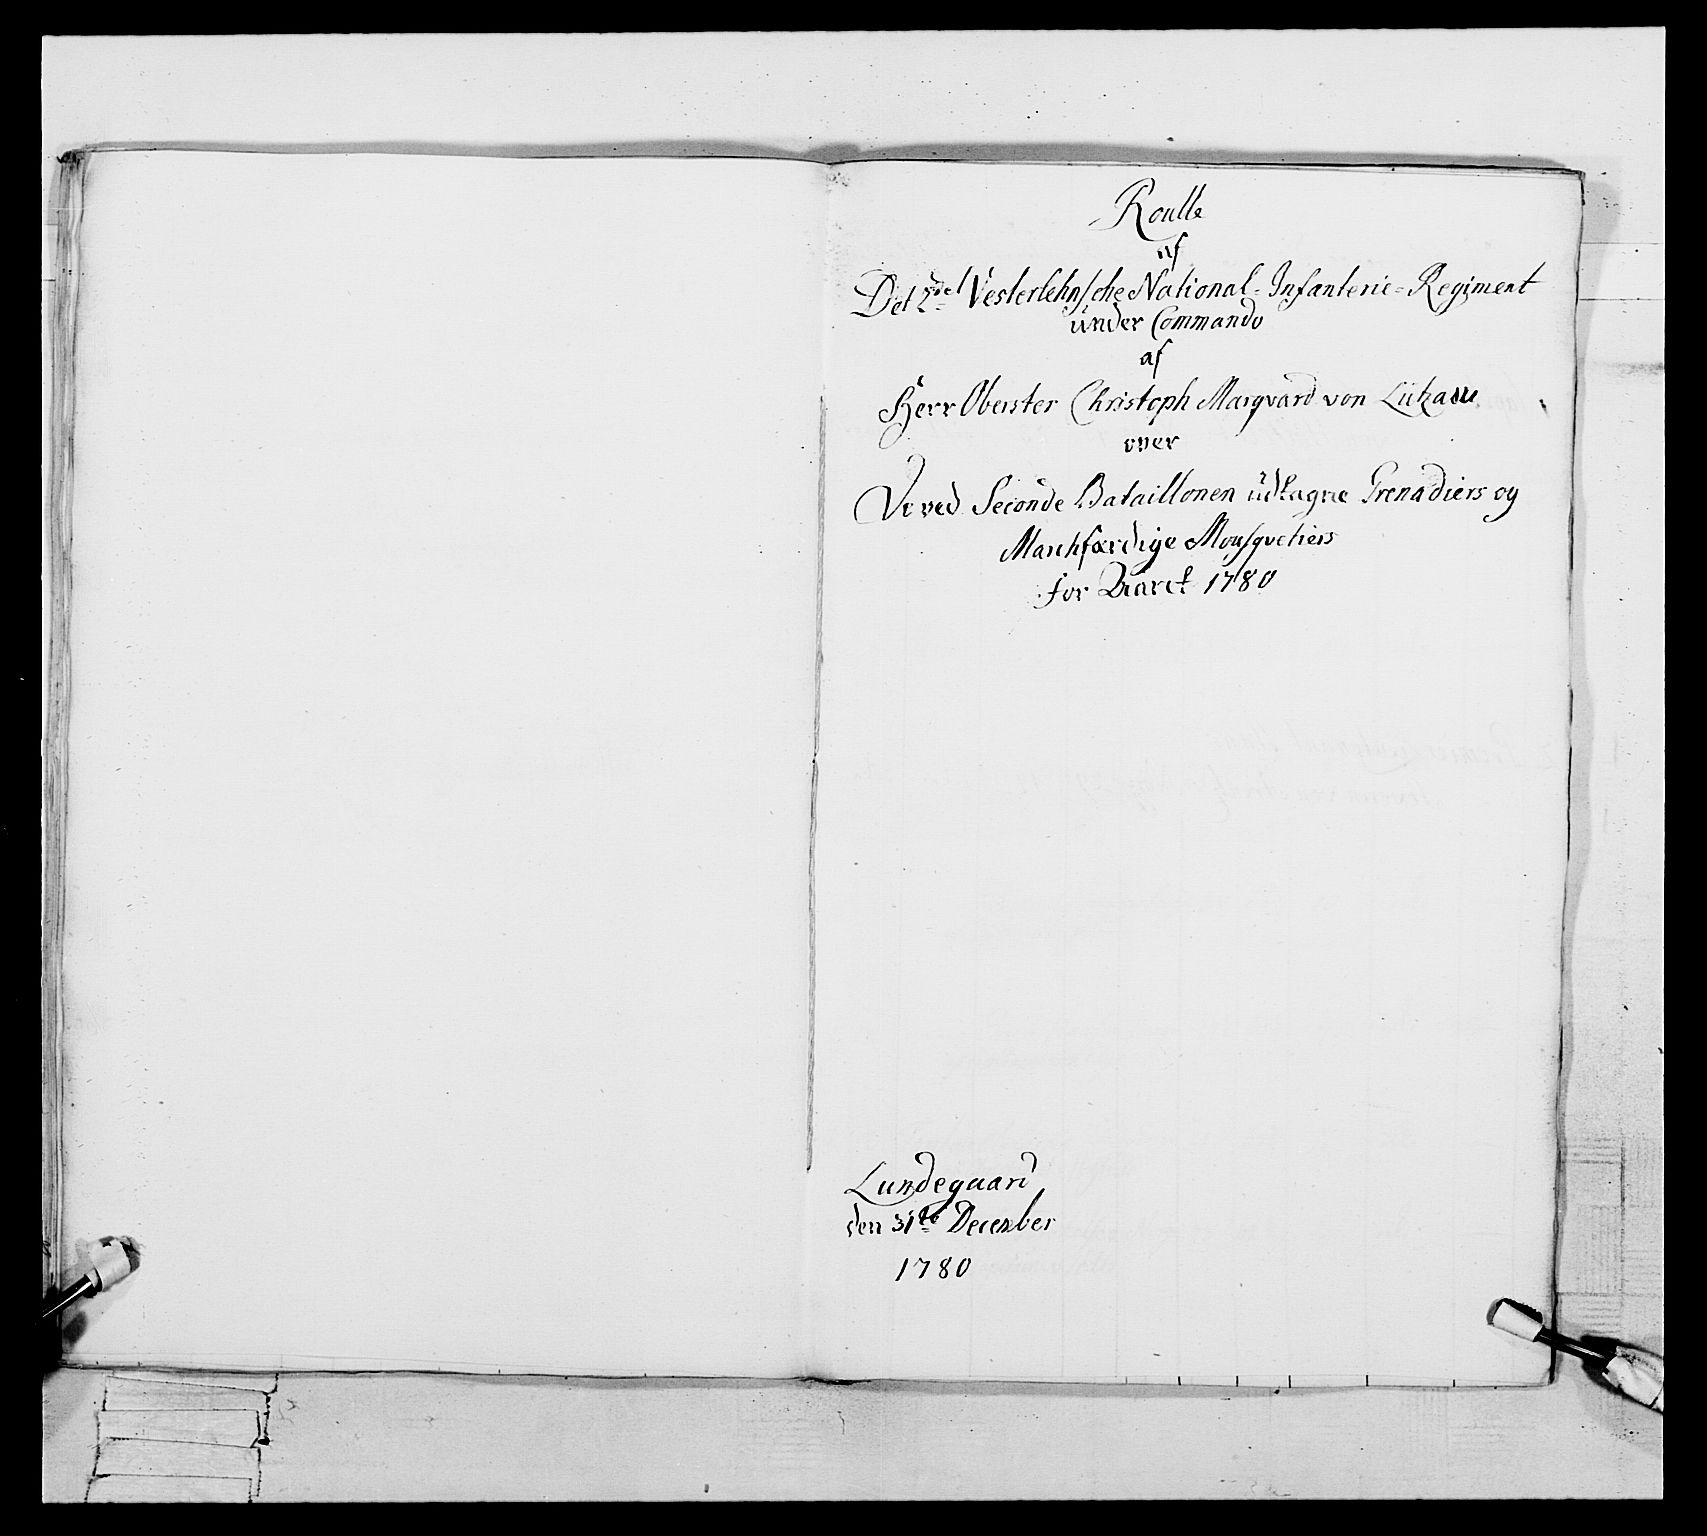 Roulle
af
Det 2det Vesterlehnsche National-Infanterie-Regiment
under Commando
af
Herr Oberster Christoph Marqvard von Lützau
over
De ved Seconde Bataillonen üdtagne Grenadiers og
Marchfærdige Mousquetiers
for Aaret 1780
Lundegaard
den 31te December
1780